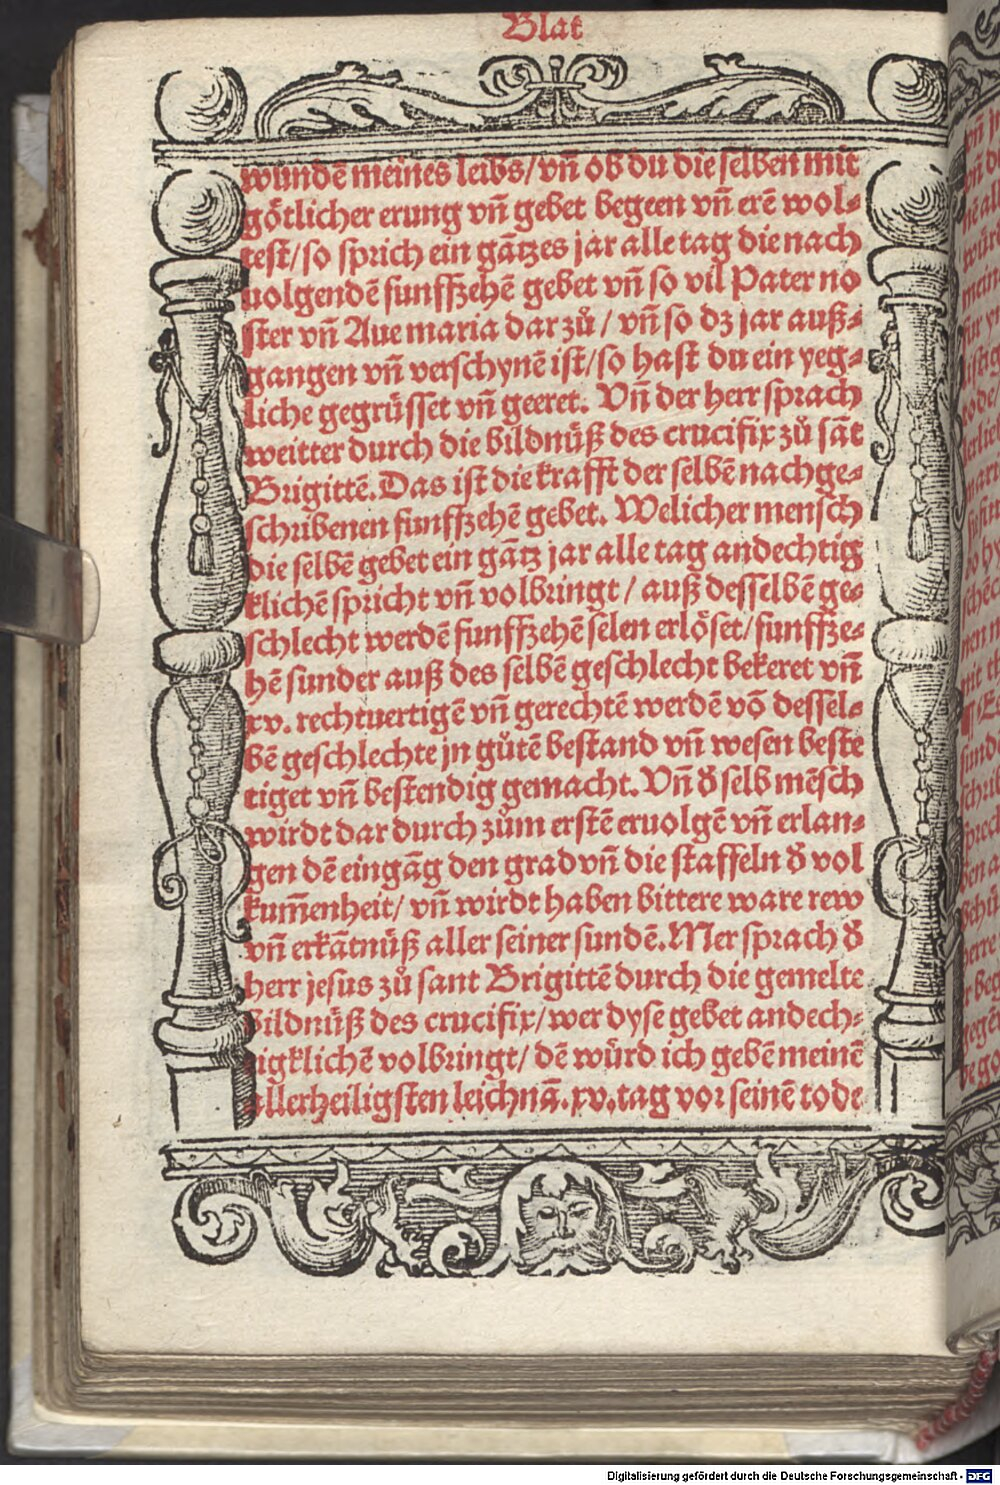 Blat
wundē meines leibs/vn̄ ob du die selben mit
gőtlicher erung vn̄ gebet begeen vn̄ erē wol⸗
test/so sprich ein gātzes jar alle tag die nach
uolgendē funffzehē gebet vn̄ so vil Pater no
ster vn̄ Aue maria dar zů/ vn̄ so dz jar auß⸗
gangen vn̄ verschynē ist/so hast du ein yeg⸗
liche gegrüsset vn̄ geeret. Vn̄ der herr sprach
weitter durch die bildnüß des crucifix zů sāt
Brigittē. Das ist die krafft der selbē nachge⸗
schribenen funffzehē gebet. Welicher mensch
die selbē gebet ein gātz jar alle tag andechtig
klichē spricht vn̄ volbringt/ auß desselbē ge⸗
schlecht werdē funffzehē selen erlőset/funffze⸗
hē sunder auß des selbē geschlecht bekeret vn̄
xv. rechtuertigē vn̄ gerechtē werdē vō dessel⸗
bē geschlechte jn gůtē bestand vn̄ wesen beste
tiget vn̄ bestendig gemacht. Vn̄ d̄ selb mēsch
wirdt dar durch zům erstē eruolgē vn̄ erlan⸗
gen dē eingāg den grad vn̄ die staffeln d̄ vol
kum̄enheit/ vn̄ wirdt haben bittere ware rew
vn̄ erkātnüß aller seiner sundē. Mer sprach d̄
herr jesus zů sant Brigittē durch die gemelte
bildnüß des crucifix/wer dyse gebet andech⸗
tigklichē volbringt/ dē würd ich gebē meinē
allerheiligsten leichnā. xv. tag vor seinē tode
Digitalisierung gefördert durch die Deutsche Forschungsgemeinschaft - DFG